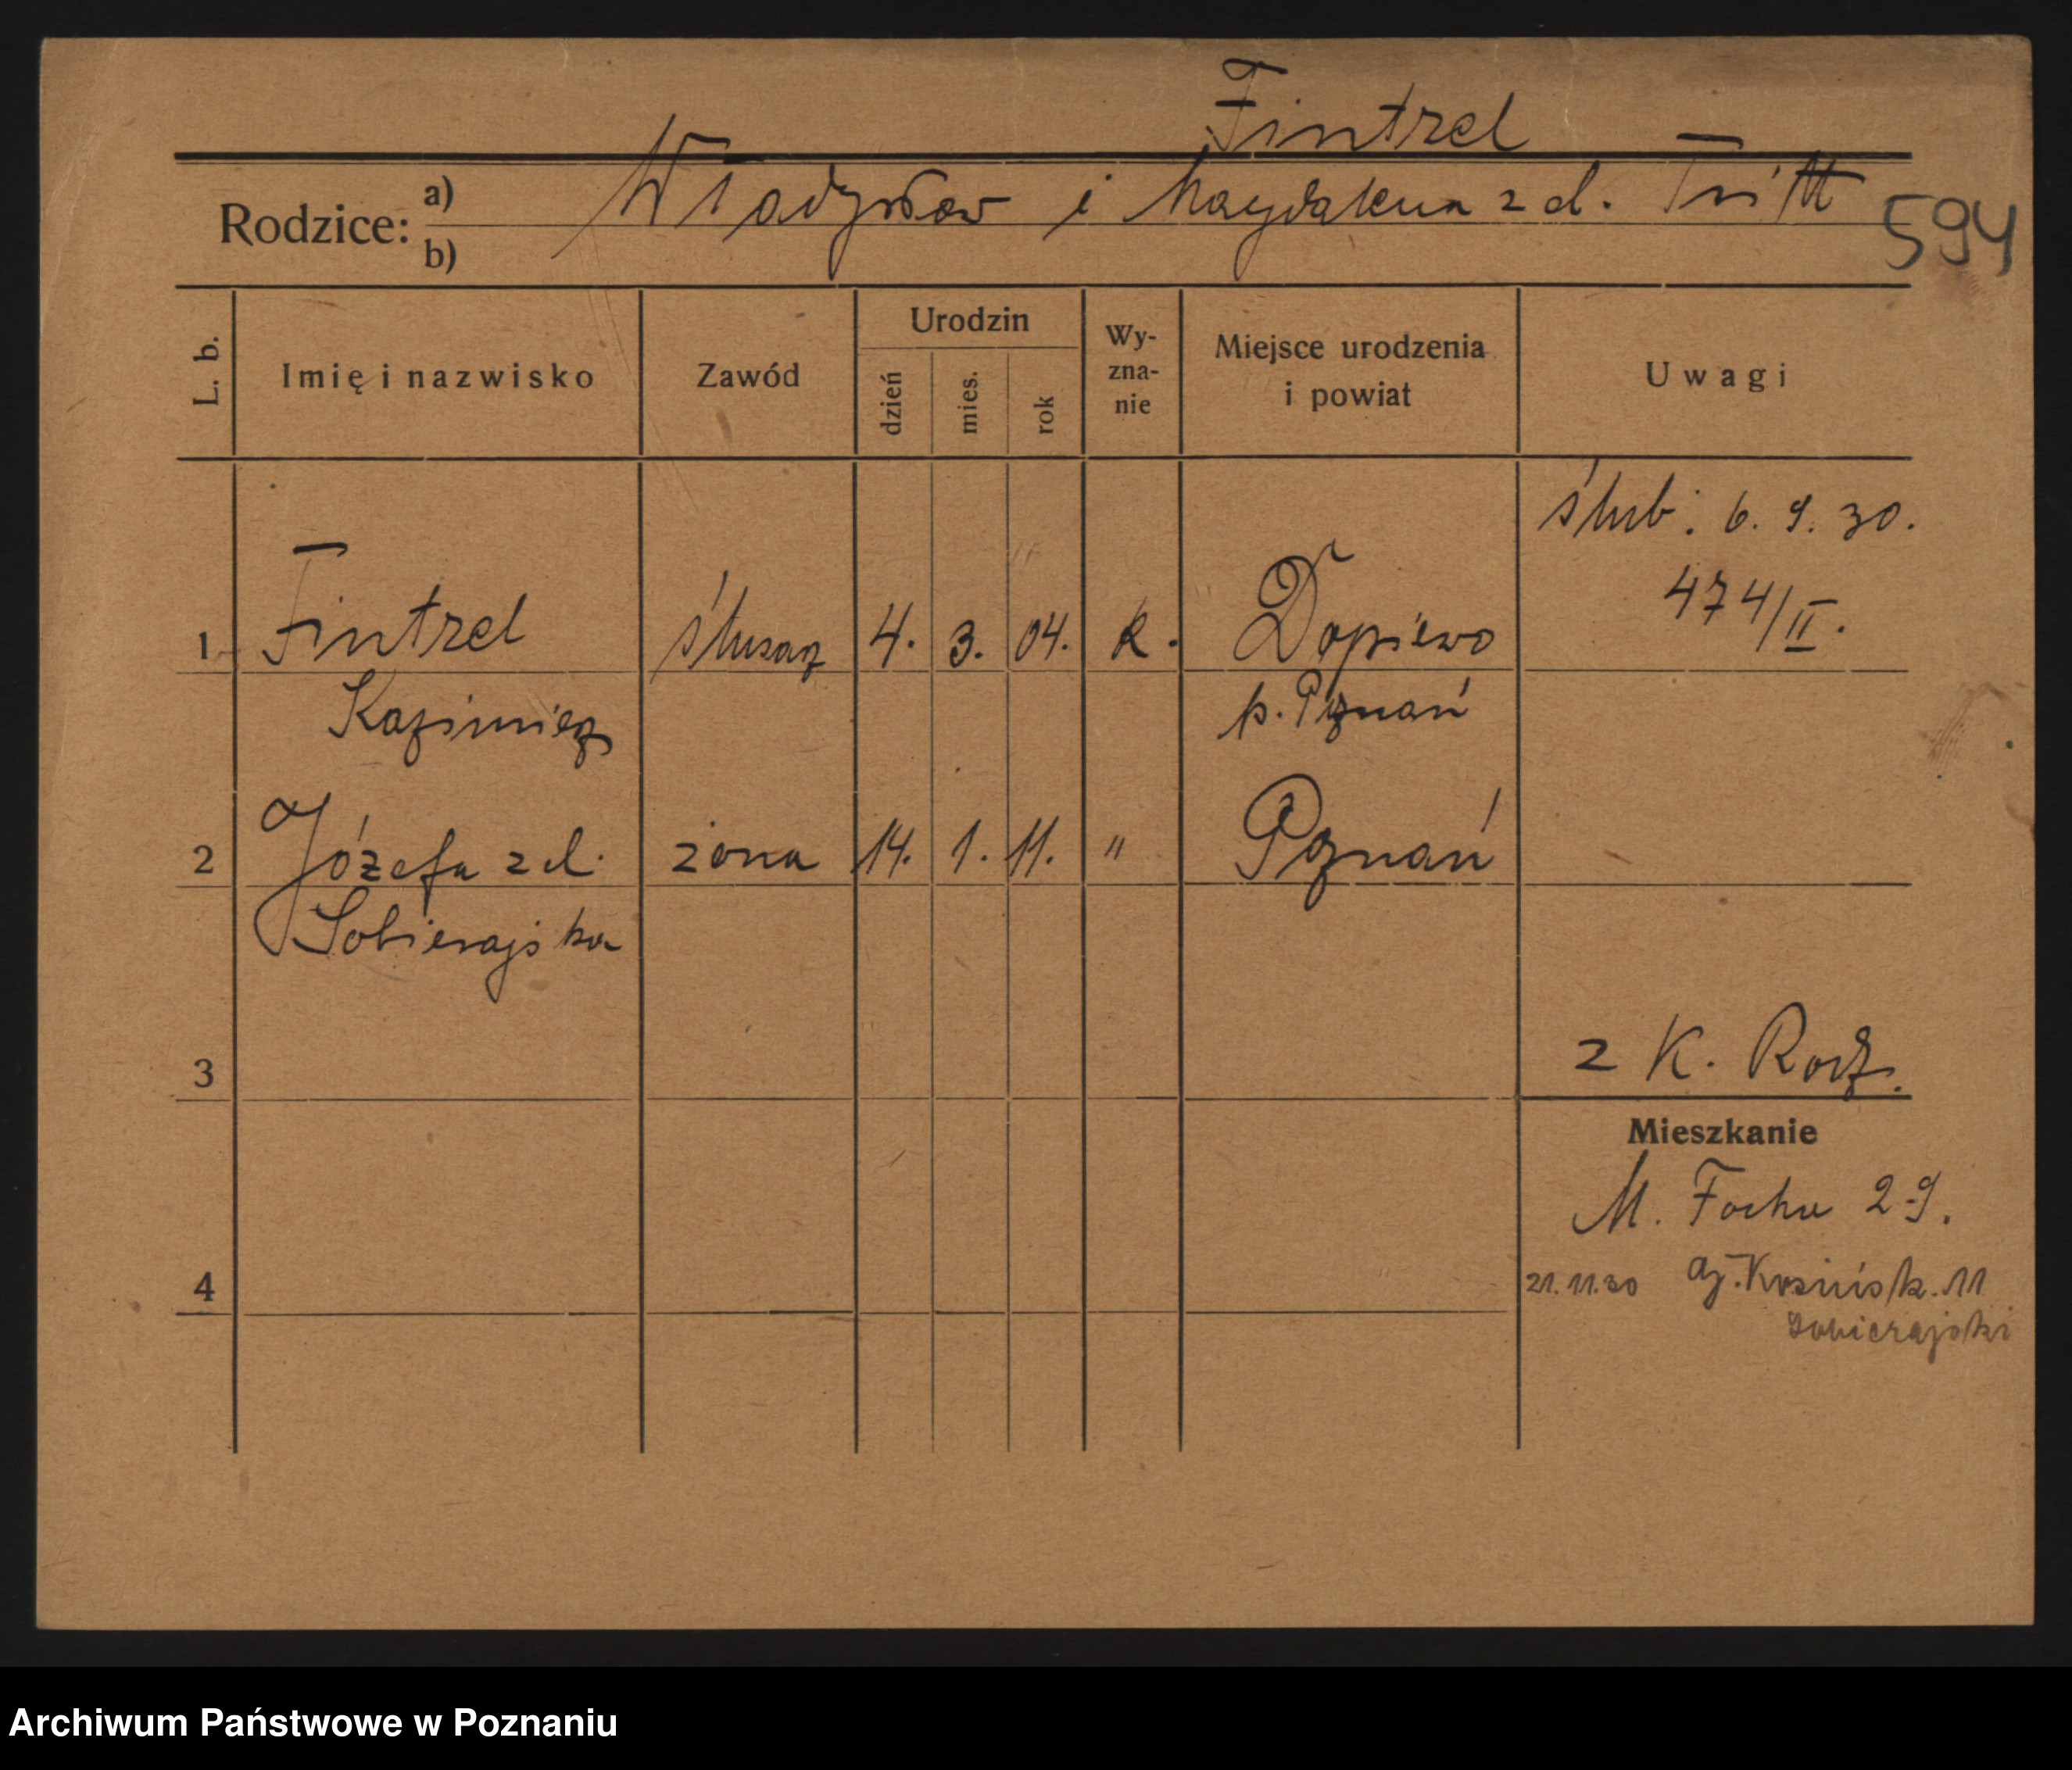 Fintzel
Rodzice: a) Władysław i Magdalena z d. Tritt
b)
594
L. b. Imię i nazwisko Zawód Urodzin dzień mies. rok Wy-zna-nie Miejsce urodzenia i powiat Uwagi
ślub: 6. 9. 30.
474/II.
1 Fintzel ślusarz 4. 3. 04. k. Dopiewo
Kazimierz p. Poznań
2 Józefa z d. żona 14. 1. 11. " Poznań
Sobierajska
z K. Rodz.
3
Mieszkanie
M. Focha 29.
4 21.11.30 11
Sobierajski
Archiwum Państwowe w Poznaniu